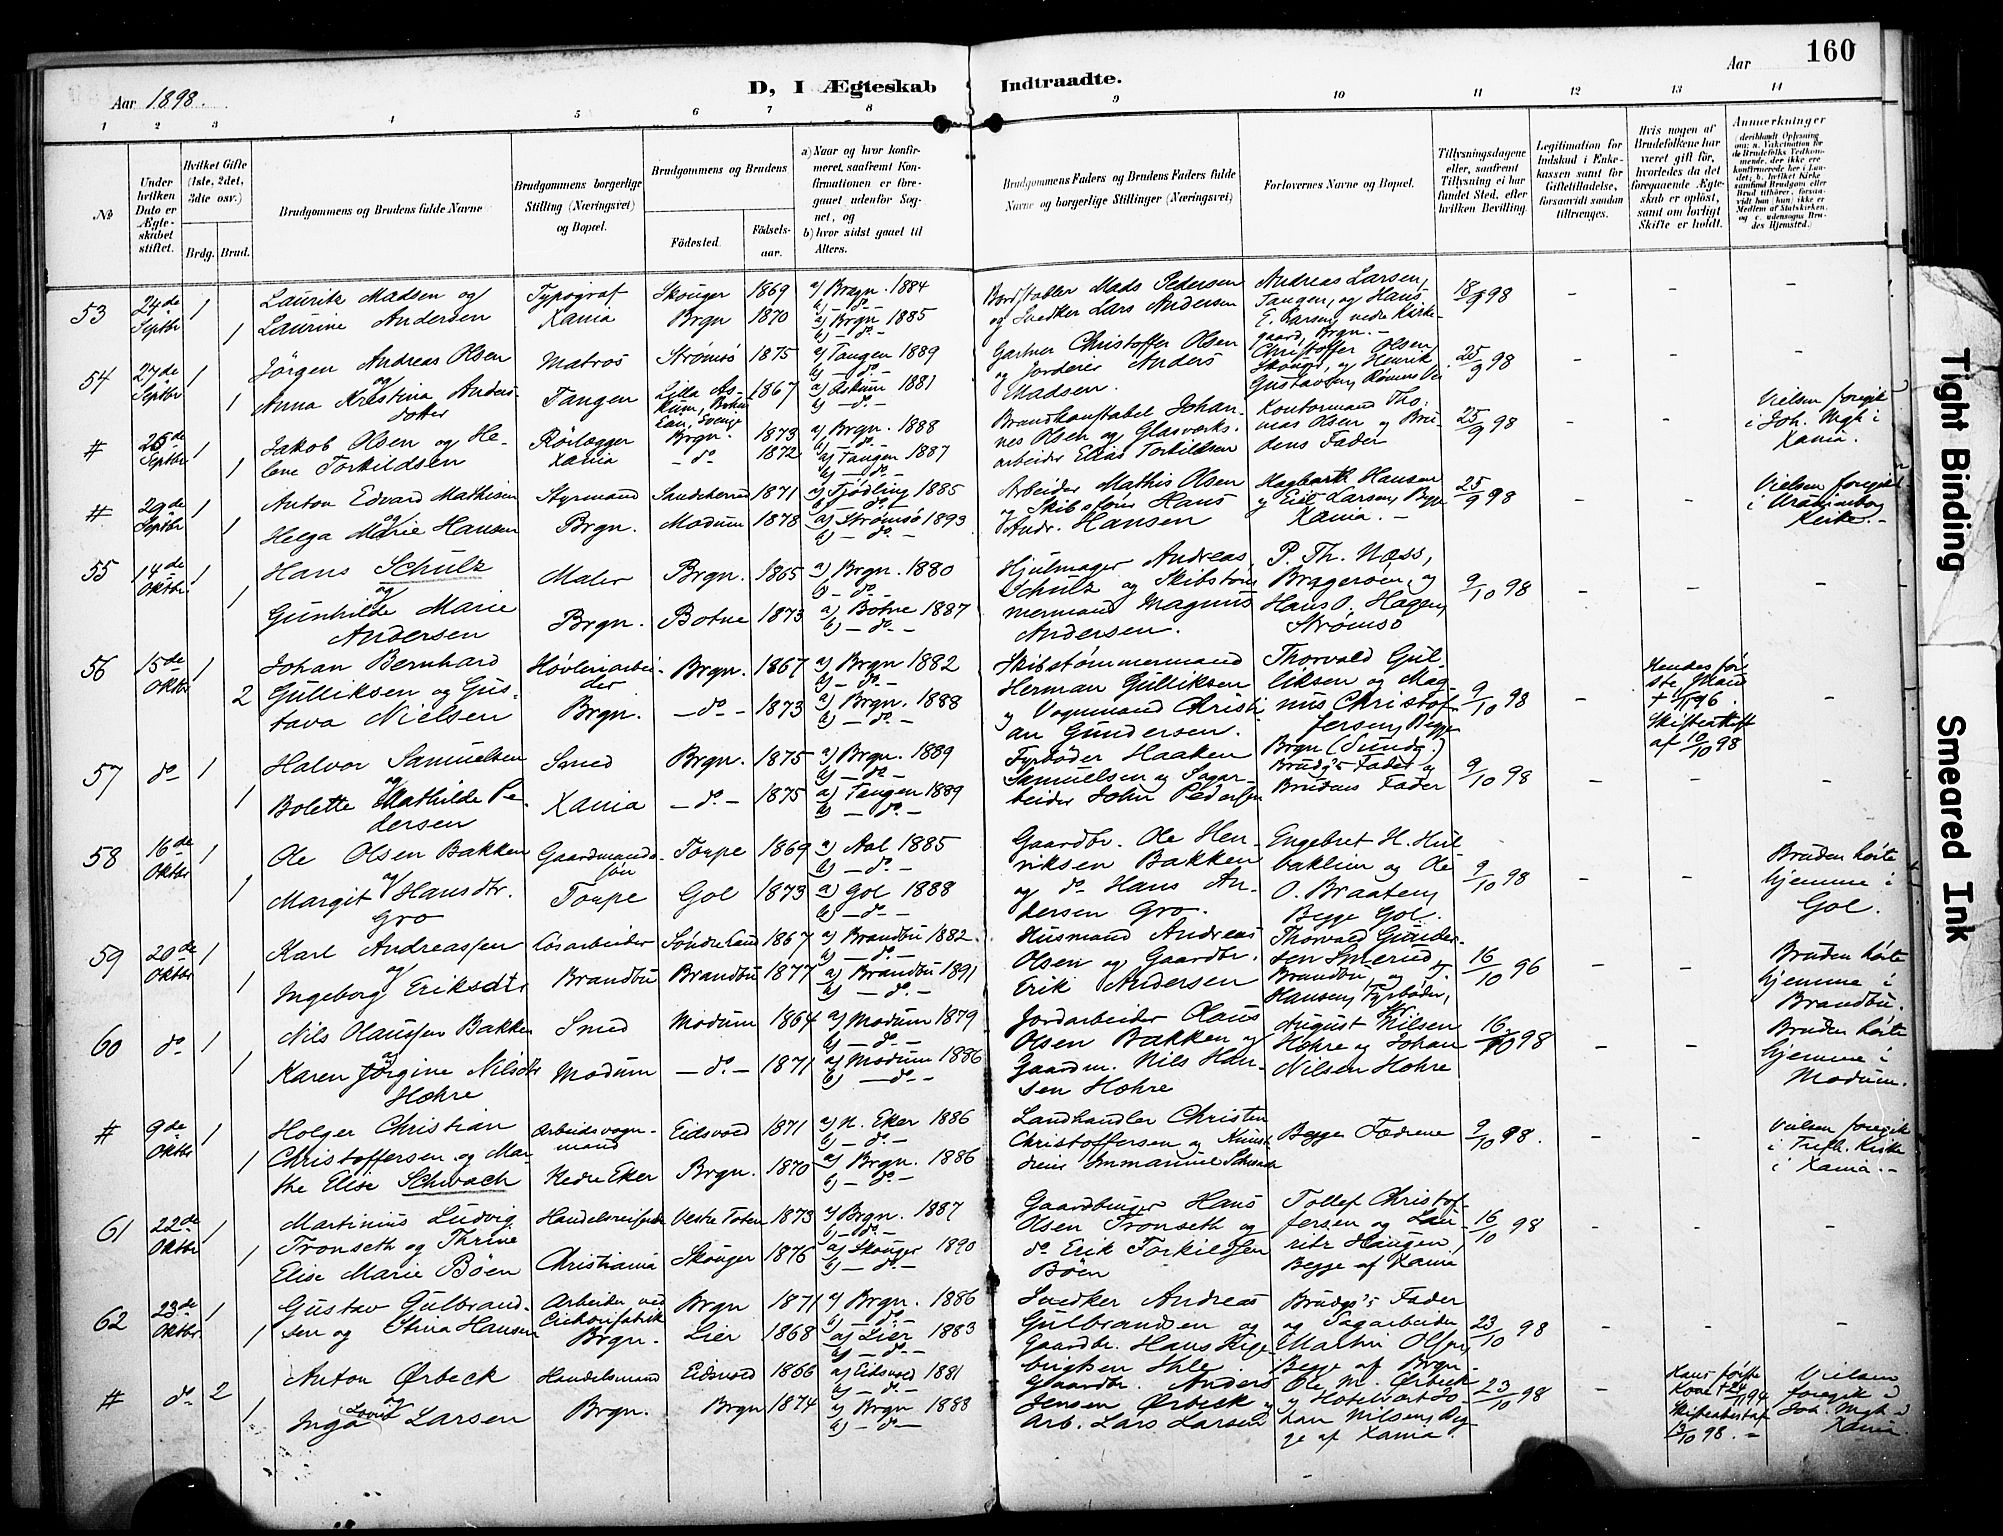 160
Aar 1898.
D, I Ægteskab Indtraadte.
Aar
1 2 3 4 5 6 7 8 9 10 11 12 13 14
No
Under hvilken Dato er Ægteskabet stiftet.
Hvilket Gifte (1ste, 2det, 3die osv.)
Brdg. Brud.
Brudgommens og Brudens fulde Navne
Brudgommens borgerlige Stilling (Næringsvei) og Bopæl.
Brudgommens og Brudens
Födested.
Födselsaar.
a) Naar og hvor konfirmeret, saafremt Konfirmationen er foregaaet udenfor Sognet, og
b) hvor sidst gaaet til Alters.
Brudgommens Faders og Brudens Faders fulde Navne og borgerlige Stillinger (Næringsvei)
Forlovernes Navne og Bopæl.
Tillysningsdagene eller, saafremt Tillysning ei har fundet Sted, efter hvilken Bevilling.
Legitimation for Indskud i Enkekassen samt for Giftetilladelse, forsaavidt saadan tiltrænges.
Hvis nogen af Brudefolkene har været gift för, hvorledes da det foregaaende Ægteskab er oplöst, samt om lovligt Skifte er holdt.
Anmærkninger
53 24de Septbr 1 Laurits Madsen og Typograf Skouger 1869 a) Bragn. 1884 Bordstabler Mads Pedersen Andreas Larsen, 18/9 98 - - -
1 Laurine Andersen Xania Brgn 1870 a) Brgn 1885 og Snedker Lars Andersen Tangen, og Hans E. Larsen, nedre Kirkegaard, Brgn. -
54 24de Septbr 1 Jörgen Andreas Olsen Matros Strömsö 1875 a) Tangen 1889 Gartner Christoffer Olsen Christoffer Olsen 25/9 98 - - -
1 og Anna Kristina Andersdoter Tangen 1867 a) Askum 1881 og Jorderier Anders Madsen. Skouger, og Henrik Gustavsen,
# 25de Septbr 1 Jakob Olsen og Helene Rörlægger Brgn. 1873 a) Brgn. 1888 Brandkonstabel Johannes Olsen og Glasværks- Kontormand Thomas Olsen og Bru- 25/9 98 - - Vielsen foregik
1 Torkildsen Xania - do - 1872 a) Tangen 1887 arbeider Elias Torkildsen dens Fader i Joh. Mgh i Xania.
# 29de Septbr 1 Anton Edvard Mathisen Styrmand Sandeherred 1871 a) Tjödling 1885 Arbeider Mathis Olsen Hagbarth Hansen 25/9 98 - - Vielsen foregik
1 og Helga Marie Hansen Brgn. Modum 1878 a) Strömsö 1893 og Skibsförer Hans Andr. Hansen Larsen, Begge Xania. - i Uranienborg Kirke. -
55 14de Oktbr 1 Hans Schulz Maler Brgn. 1865 a) Brgn. 1880 Hjulmager Andreas P. Th. Næss, 9/10 98 - - -
1 og Gunhilde Marie Andersen Brgn. Botne 1873 a) Botne 1887 Schulz og Skibstömmermand Magnus Andersen. Bragerøen, og Hans O. Hagen, Strömsö
56 15de Oktbr 1 Johan Bernhard Høvleriarbeider Brgn. 1867 a) Brgn 1882 Skibstømmermand Thorvald Gulliksen og Mag- 9/10 98 - Hendes første Mand
2 Gulliksen og Gustava Nielsen Brgn. - do - 1873 a) Brgn. 1888 Herman Gulliksen og Vognmand Christian Gundersen. nus Christoffersen, Begge Brgn (Sundg.) Skifteattest af 10/10 98
57 do 1 Halvor Samuelsen Smed Brgn. 1875 a) Brgn. 1889 Fyrbøder Haaken Brudg's Fader og 9/10 98 - - -
1 og Bolette Mathilde Pedersen Xania - do - 1875 a) Tangen 1889 Samuelsen og Sagarbeider John Pedersen Brudens Fader
58 16de Oktbr 1 Ole Olsen Bakken Gaardmandssön Torpe 1869 a) Aal 1885 Gaardbr. Ole Henriksen Bakken Engebret H. 9/10 98 - - Bruden hörte
1 og Margit Hansdtr. Gro Torpe Gol 1873 a) Gol 1888 og do Hans Andersen Gro. og Ole O. Braaten, Begge Gol. hjemme i Gol.
59 20de Oktbr 1 Karl Andreassen Lösarbeider Söndre Land 1867 a) Brandbu 1882 Husmand Andreas Thorvald Gundersen 16/10 96 - - Bruden hörte
1 og Ingeborg Eriksdtr Brandbu Brandbu 1877 a) Brandbu 1891 Olsen og Gaardbr. Erik Andersen Smerud, Brandbu, og T. Hansen, Fyrbøder, hjemme i Brandbu.
60 do 1 Nils Olaussen Bakken Smed Modum 1864 a) Modum 1879 Jordarbeider Olaus August Nilsen 16/10 98 - - Bruden hörte
1 og Karen Jörgine Nilsdtr Hohre Modum - do - 1871 a) Modum 1886 Olsen Bakken og Gaardm. Nils Hansen Hohre Hohre og Johan Nilsen Hohre hjemme i Modum.
# 9de Oktbr 1 Holger Christian Arbeidsvognmand Eidsvold 1871 a) N. Eker 1886 Landhandler Christen Begge Fædrene 9/10 98. - - Vielsen foregik
1 Christoffersen og Marthe Elise Schwach Nedre Eker Brgn. 1870 a) Brgn. 1886 Christoffersen og i Trefl. Kirke i Xania. -
61 22de Oktbr 1 Martinius Ludvig Handelsreisende Vestre Toten 1873 a) Brgn. 1887 Gaardbruger Hans Tollef Christof- 16/10 98 - - -
1 Tronseth og Thrine Elise Marie Böen Christiania Skouger 1876 a) Skouger 1890 Olsen Tronseth og do Erik Torkildsen Böen fersen og Lauritz Haugen, Begge af Xania
62 23de Oktbr 1 Gustav Gulbrand- Arbeider ved Cicoriefabrik Brgn 1871 a) Brgn. 1886 Snedker Andreas Brudg's Fader 23/10 98 - - -
1 sen og Stina Hansen Brgn. Lier 1868 a) Lier 1883 Gulbrandsen og Gaardbr. Hans og Sagarbeider Martin Olsen, Begge af Brgn.
# do 2 Anton Ørbeck Handelsmand Eidsvold 1866 a) Eidsvold 1881 Gaardbr. Anders Ole M. Ørbeck 23/10 98 - Hans første Kone Vielsen
1 og Inga Lovise Larsen Brgn. Brgn 1874 a) Brgn 1888 Jensen Ørbeck og Arb. Lars Larsen og Hotelvært Johan Nilsen, Begge af Xania. Skifteattest af 13/10 98. - foregik i Joh. Mgh i Xania.
Tight Binding
Smeared Ink